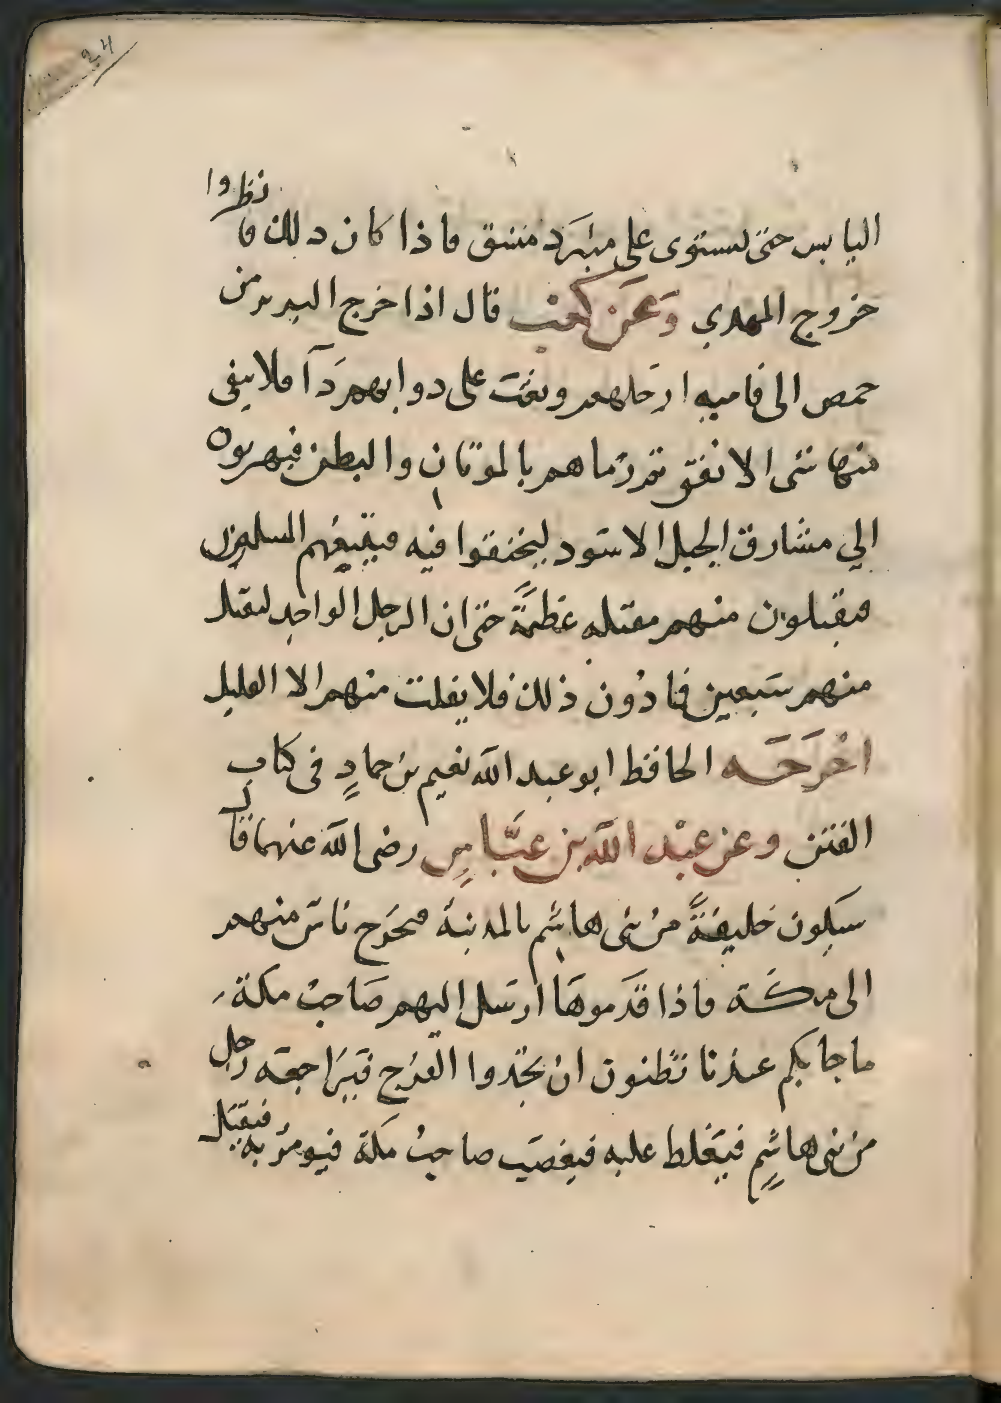 24
اليابس حتى يستوى على منبر دمشق فاذا كان ذلك فانظروا
خروج المهدي وعن كعب قال اذا خرج البربر من
حمص الى فاميه ارجلهم وبعث على دوابهم داء فلا يبقى
منها شى الا نفق ثم رماهم بالموتان والبطن فيهربون
الي مشارق الجبل الاسود ليختفوا فيه فيتبعهم المسلمون
فيقتلون منهم مقتله عظيمةً حتى ان الرجل الواحد ليقتل
منهم سبعين فما دون ذلك فلا يفلت منهم الا القليل
اخرجه الحافظ ابو عبد الله نعيم بن حمادٍ فى كتاب
الفتن وعن عبد الله بن عبّاسٍ رضى الله عنهما قال
سيكون خليفةً من بنى هاشم بالمدينة فيخرج ناس منهم
الى مكة فاذا قدموها ارسل اليهم صاحب مكة
ما جا بكم عندنا تظنون ان تجدوا الفرج فيراجعه رجل
من بنى هاشمٍ فيغلظ عليه فيغضب صاحبُ مكة فيومر به فيقتل